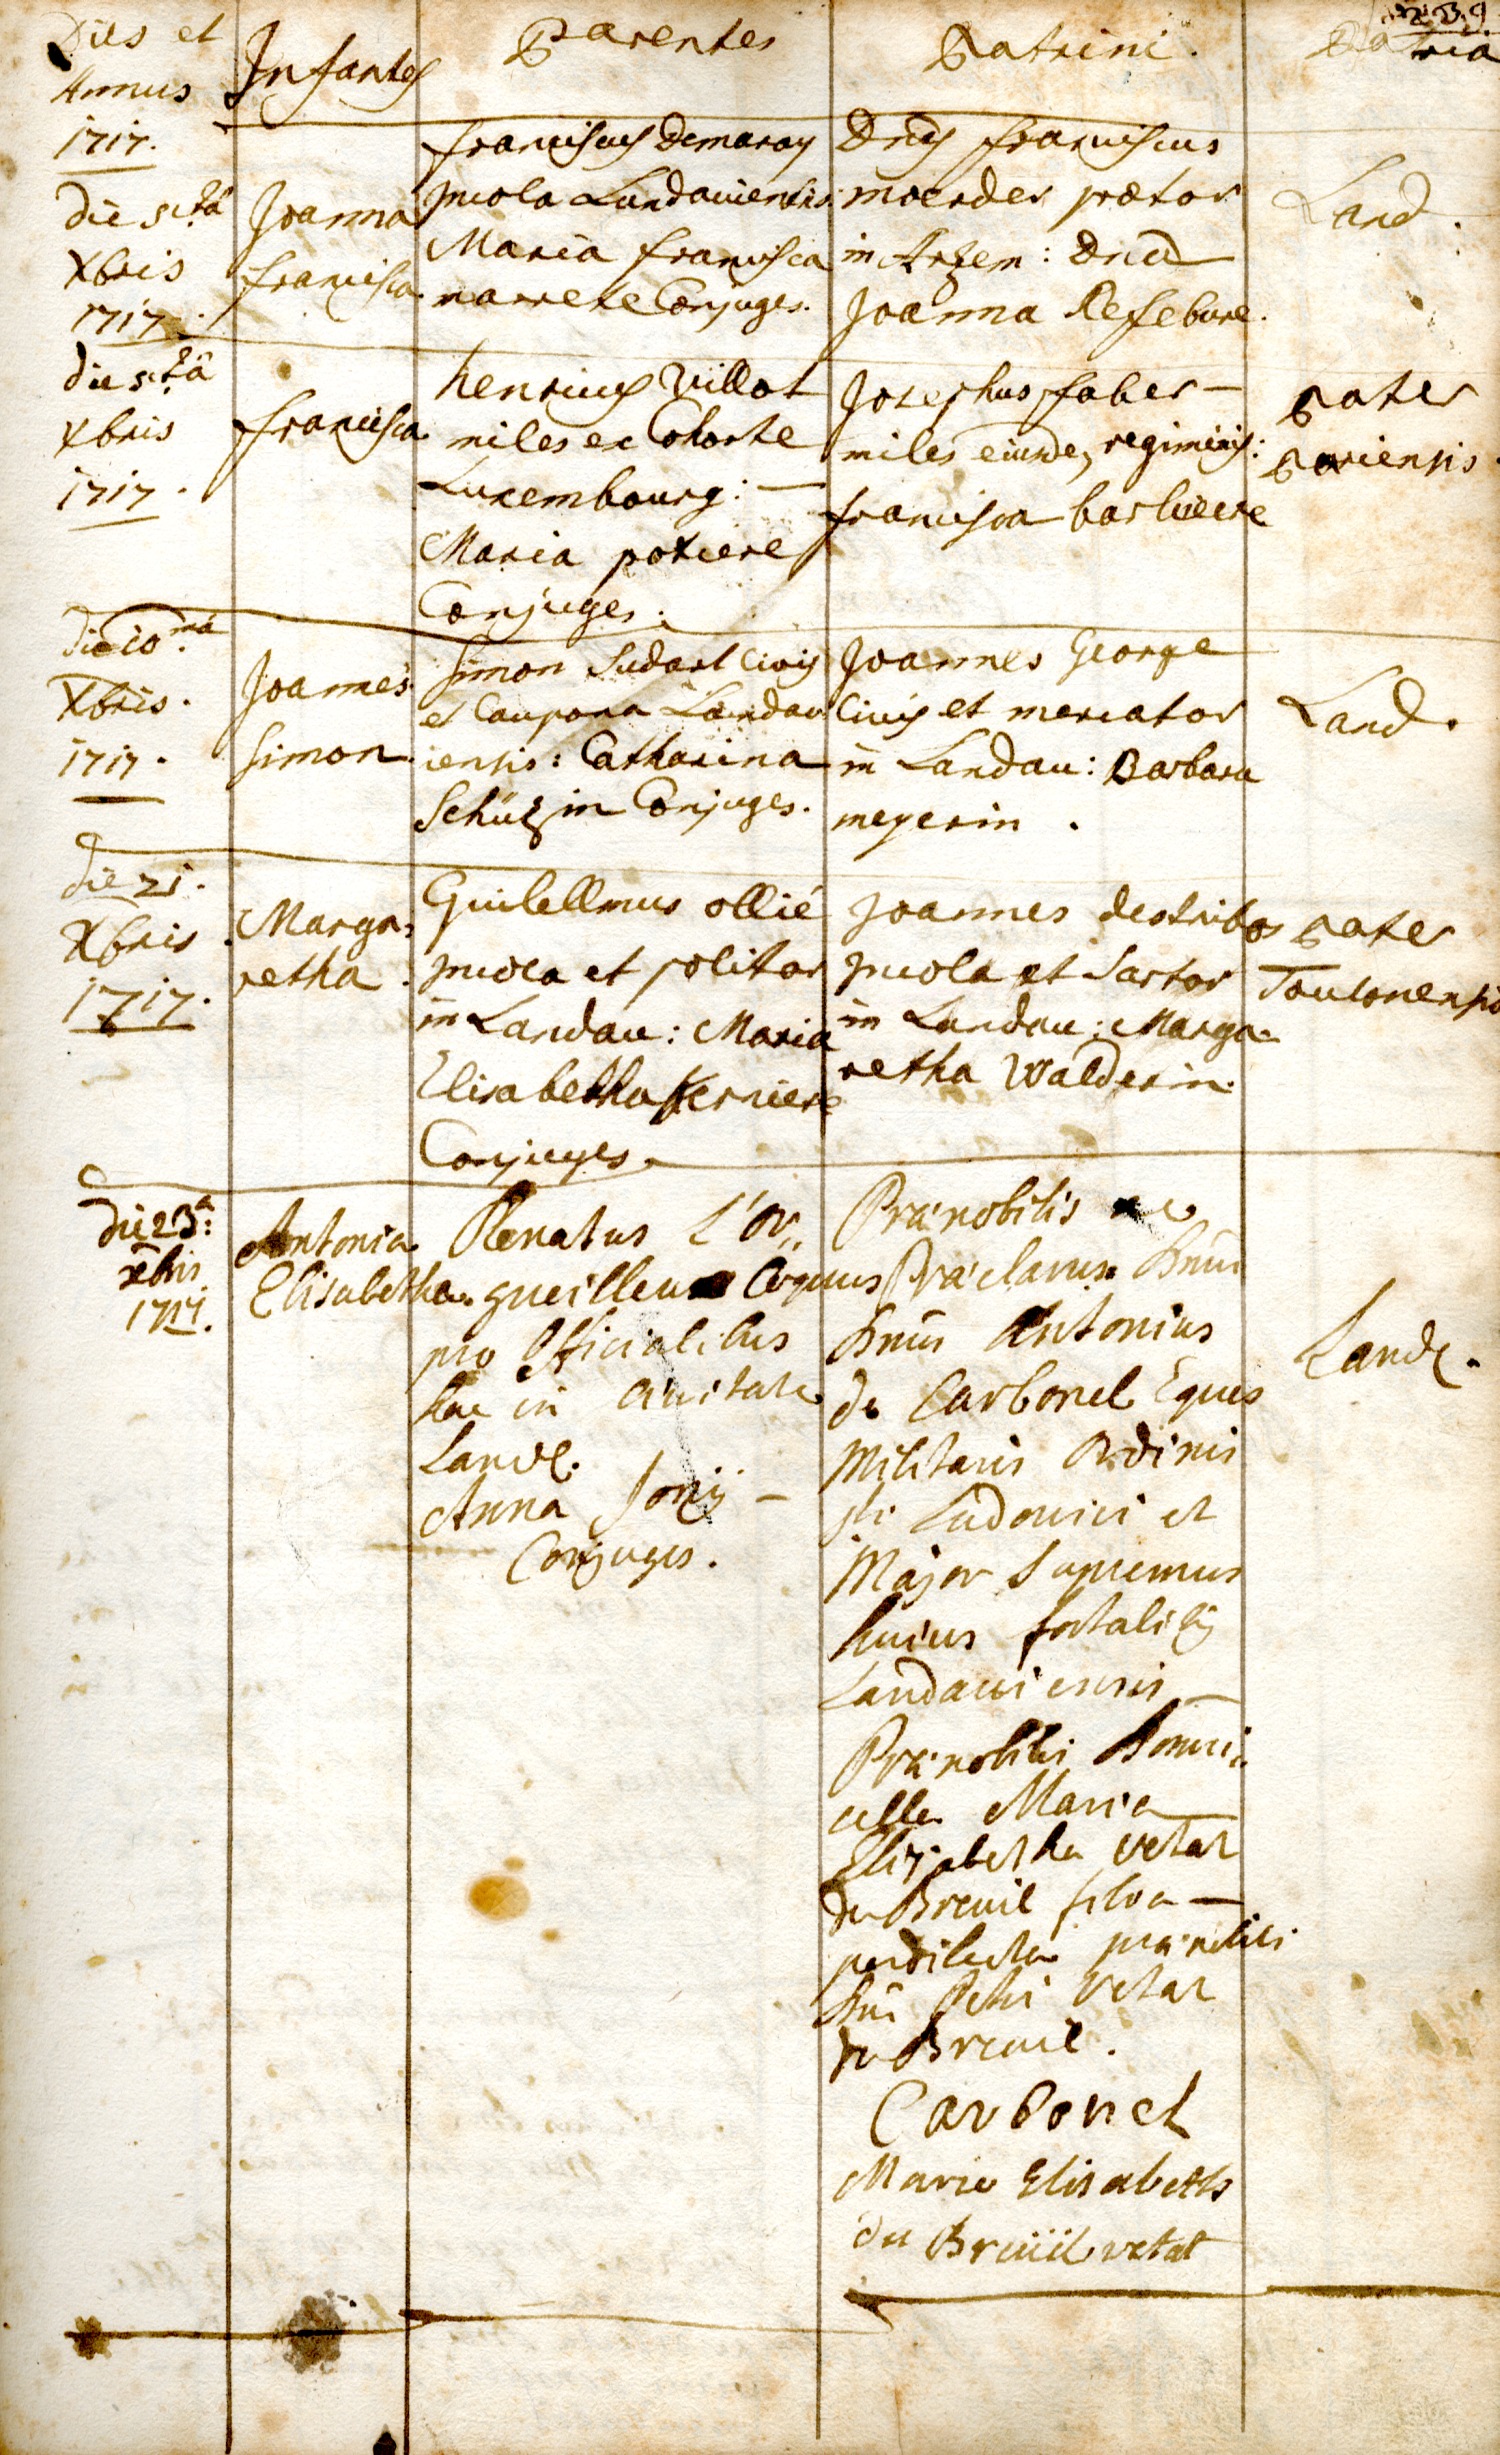 Dies et
Annus
1717.
Infantes
Parentes
Patrini.
Patria
die 5ta
Xbris
1717.
Joanna
francisca
franciscus Demaray
incola Landaviensis
Maria francisca
narrete Conjuges.
Dnus franciscus
moerder prætor
in Arzem: Dna
Joanna Lefebure.
Land.
die 5ta
xbris
1717.
francisca
henricus Villot
miles ex Cohorte
Luxembourg:
Maria potiere
Conjuges.
Josephus faber
miles eiusdem regiminis:
francisca barbiere
pater
pariensis.
Die 10ma
Xbris.
1717.
Joannes
Simon.
Simon Sudart Civis
et Caupona Landav
iensis: Catharina
Schützin Conjuges.
Joannes George
Civis et mercator
in Landau: Barbara
meyerin.
Land.
die 21.
Xbris
1717.
Marga:
retha.
Guilellmus ollié
incola et politor
in Landau: Maria
Elisabetha
Conjuges.
Joannes destribos
incola et Sartor
in Landau: Marga
retha Walderin.
pater
Toulonensis
die 23a:
xbris
1717.
Antonia
Elisabetha.
Renatus L'Or,,
gueilleux Coquus
pro Officialibus
hac in Civitate
Land.
Anna
Conjuges.
Prænobilis ac
Præclarus Dnus
Dnus Antonius
de Carbonel Eques
Militaris Ordinis
Sti Ludovici et
Major Supremus
huius fortalitij
Landaviensis
Prænobilis Domi
cella Maria
Elisabetha vetat
du Breuil filia
perdilecta prænobilis
Dni Petri Vetat
du Breuil.
Carbonel
Marie Elisabeth
du Breüil vetat
Land.